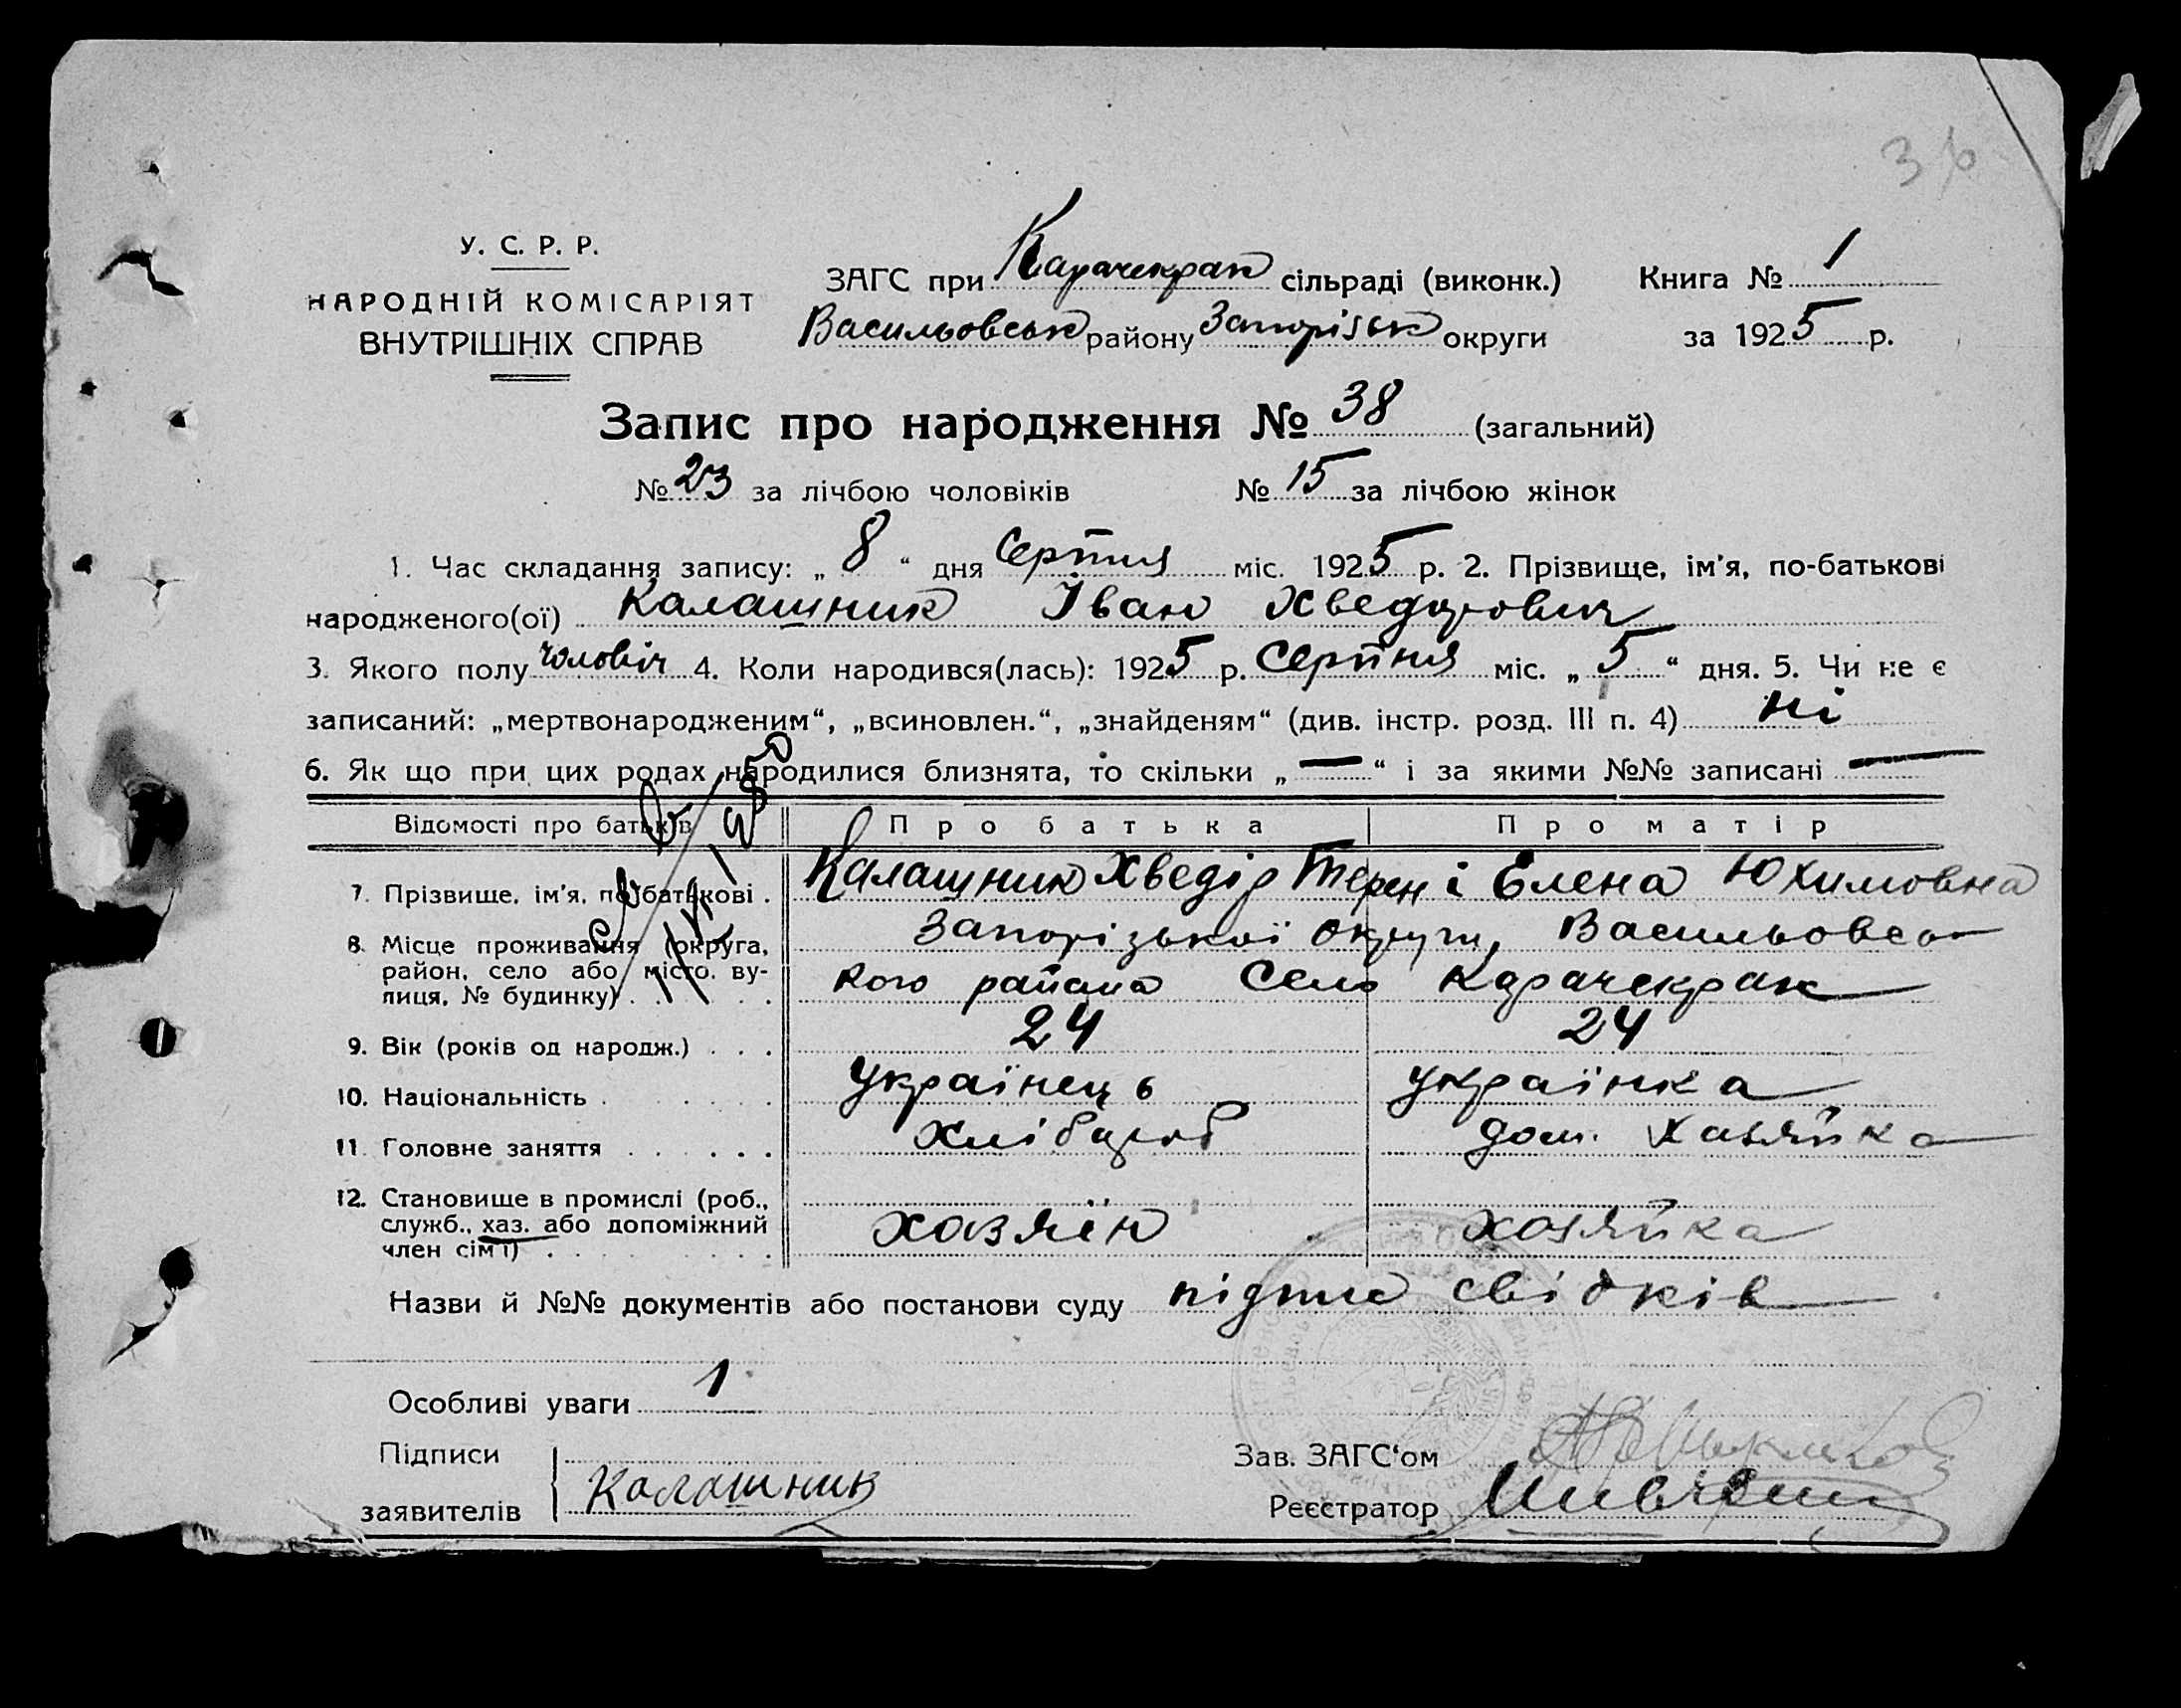 36
У. С. Р. Р.
НАРОДНІЙ КОМІСАРІЯТ
ВНУТРІШНІХ СПРАВ
ЗАГС при Карачекрак сільраді (виконк.) Книга № 1
Васильовськ району Запорізьк округи за 1925 р.
Запис про народження № 38 (загальний)
№ 23 за лічбою чоловіків № 15 за лічбою жінок
1. Час складання запису: „ 8 “ дня Серпня міс. 1925 р. 2. Прізвище, ім'я, по-батькові
народженого(ої) Калашник Іван Хведорович
3. Якого полу чоловіч 4. Коли народився(лась): 1925 р. Серпня міс. „ 5 “ дня. 5. Чи не є
записаний: „мертвонародженим“, „всиновлен.“, „знайденям“ (див. інстр. розд. III п. 4) ні
6. Як що при цих родах народилися близнята, то скільки „ — “ і за якими №№ записані —
Відомості про батьків Про батька Про матір
7. Прізвище, ім'я, по батькові . Калашник Хведір Терен і Елена Юхимовна
8. Місце проживання (округа, Запорізької округи, Васильовсь-
район, село або місто, ву- кого района Село Карачекрак
лиця, № будинку) . . . .
9. Вік (років од народж.) . . . 24 24
10. Національність . . . . . Українець українка
11. Головне заняття . . . . . . Хлібороб дом. Хазяйка
12. Становище в промислі (роб.,
служб., хаз. або допоміжний хазяїн хозяйка
член сім'ї) . . . . . . . .
Назви й №№ документів або постанови суду підпис свідків
Особливі уваги 1
Підписи Зав. ЗАГС'ом
заявителів Калашник Реєстратор